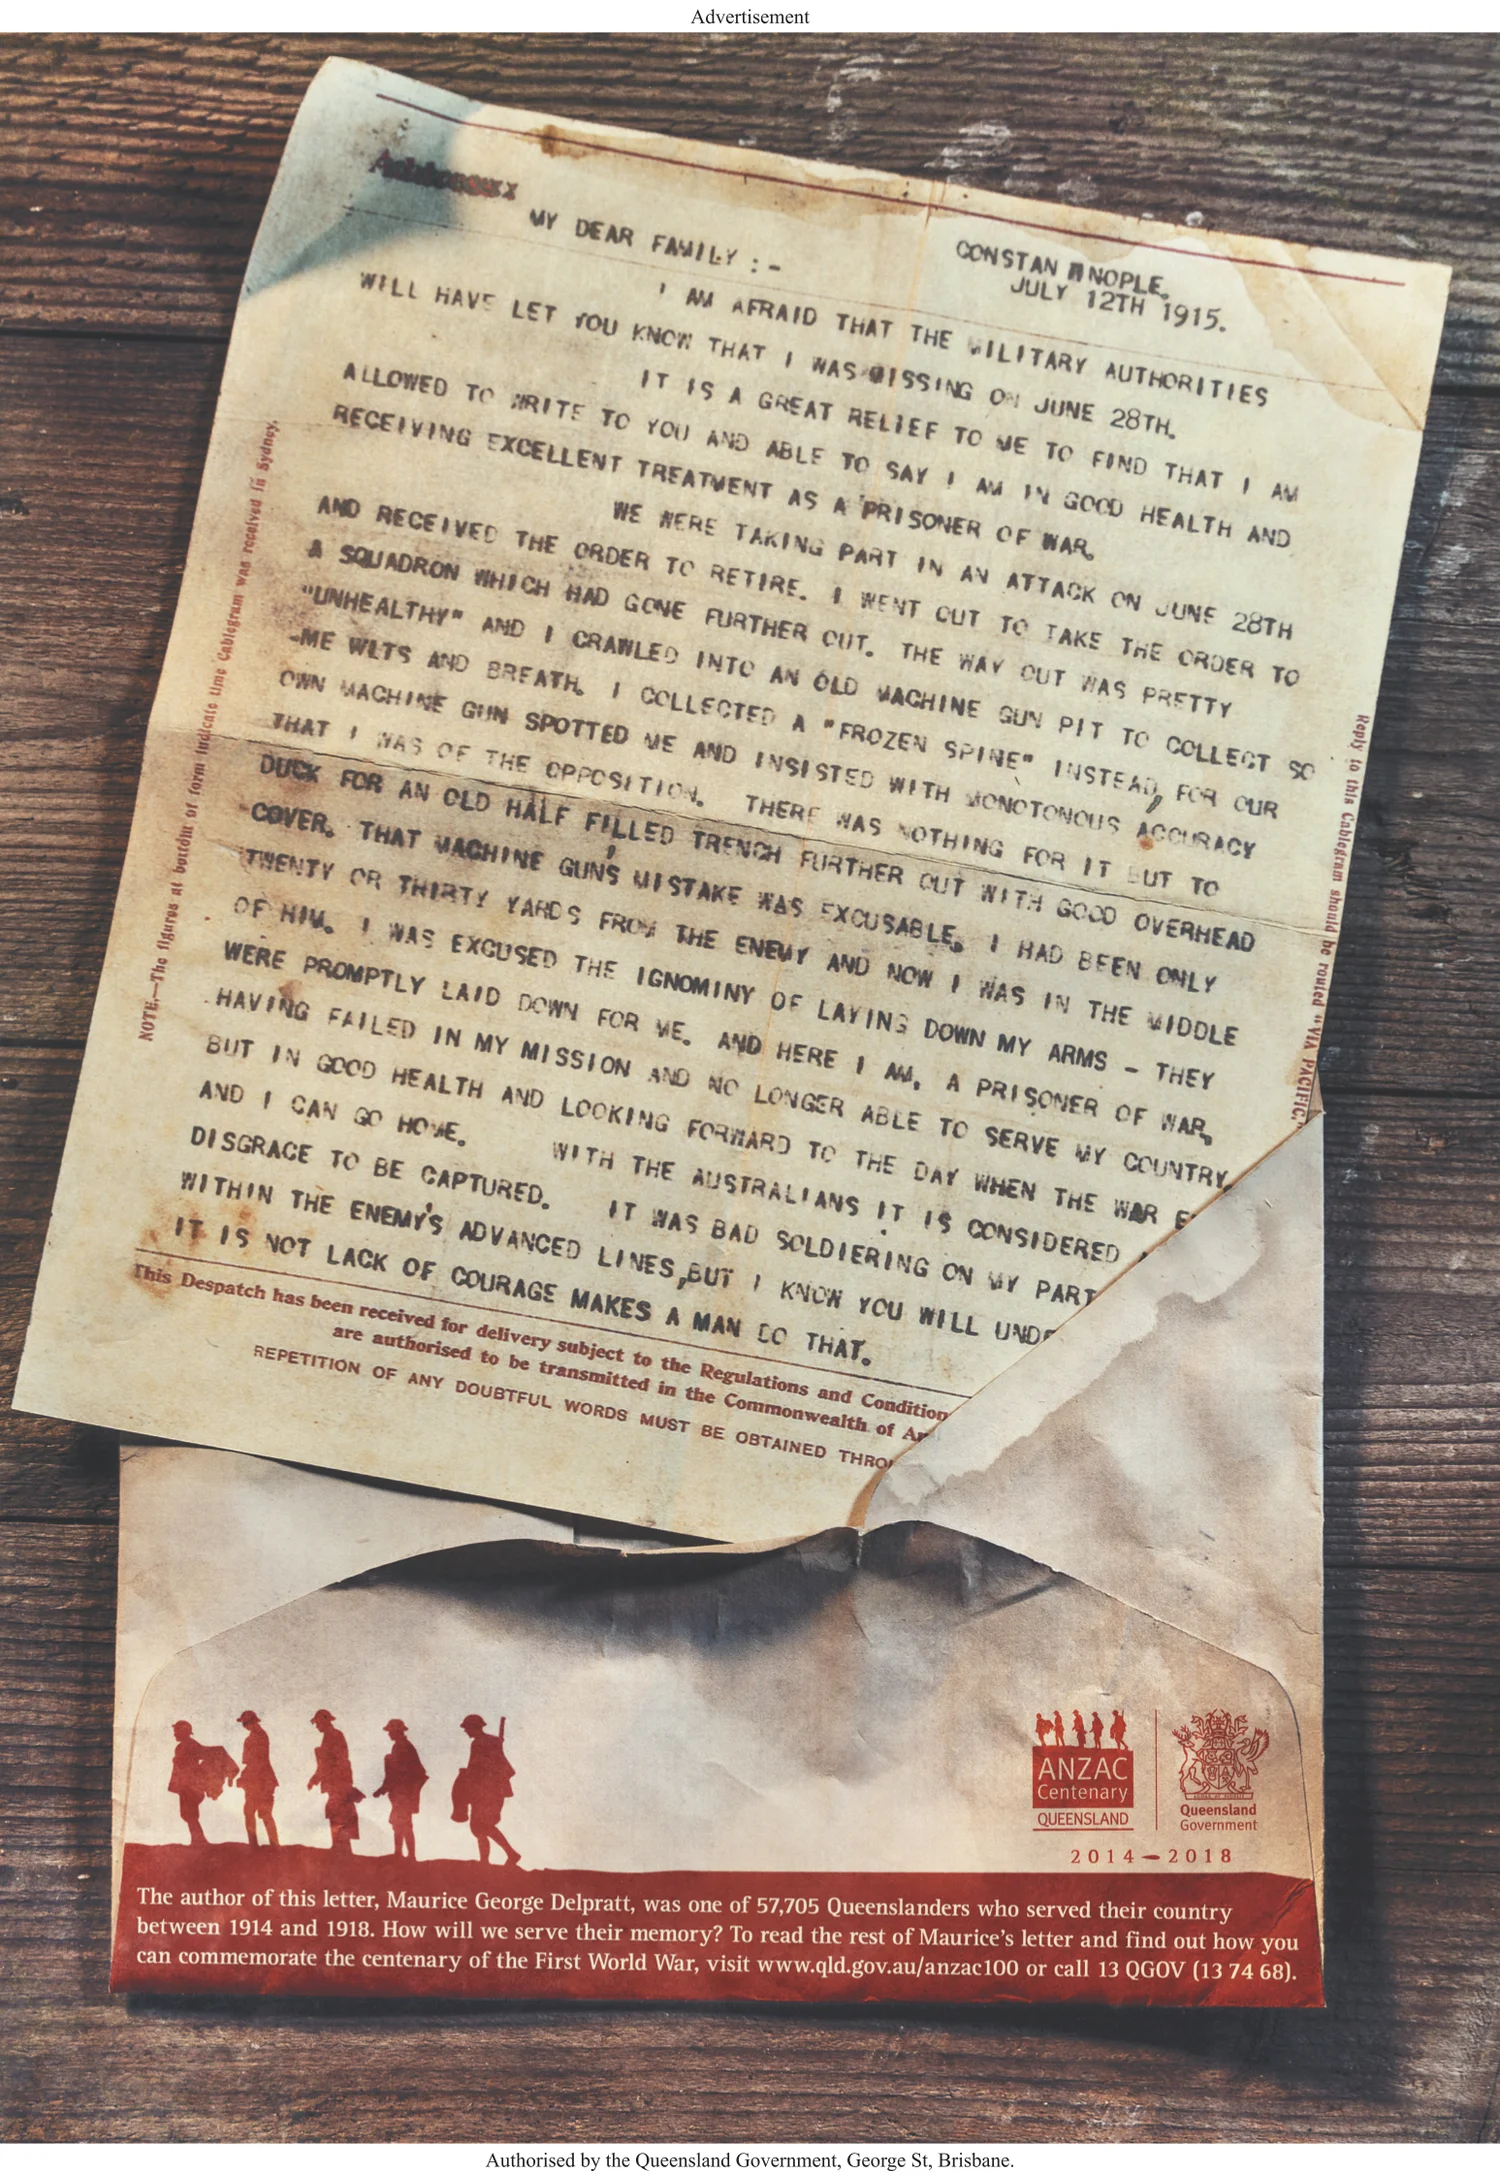 Advertisement
MY DEAR FAMILY :-
CONSTAN NOPLE.
JULY 12TH 1915.
I AM AFRAID THAT THE MILITARY AUTHORITIES
WILL HAVE LET YOU KNOW THAT I WAS MISSING ON JUNE 28TH.
IT IS A GREAT RELIEF TO ME TO FIND THAT I AM
ALLOWED TO WRITE TO YOU AND ABLE TO SAY I AM IN GOOD HEALTH AND
RECEIVING EXCELLENT TREATMENT AS A PRISONER OF WAR.
WE WERE TAKING PART IN AN ATTACK ON JUNE 28TH
AND RECEIVED THE ORDER TO RETIRE. I WENT OUT TO TAKE THE ORDER TO
A SQUADRON WHICH HAD GONE FURTHER OUT. THE WAY OUT WAS PRETTY
"UNHEALTHY" AND I CRAWLED INTO AN OLD MACHINE GUN PIT TO COLLECT SO
-ME WLTS AND BREATH. I COLLECTED A "FROZEN SPINE" INSTEAD, FOR OUR
OWN MACHINE GUN SPOTTED ME AND INSISTED WITH MONOTONOUS ACCURACY
THAT I WAS OF THE OPPOSITION. THERE WAS NOTHING FOR IT BUT TO
DUCK FOR AN OLD HALF FILLED TRENCH FURTHER OUT WITH GOOD OVERHEAD
COVER. THAT MACHINE GUN'S MISTAKE WAS EXCUSABLE. I HAD BEEN ONLY
TWENTY OR THIRTY YARDS FROM THE ENEMY AND NOW I WAS IN THE MIDDLE
OF HIM. I WAS EXCUSED THE IGNOMINY OF LAYING DOWN MY ARMS - THEY
WERE PROMPTLY LAID DOWN FOR ME. AND HERE I AM, A PRISONER OF WAR,
HAVING FAILED IN MY MISSION AND NO LONGER ABLE TO SERVE MY COUNTRY,
BUT IN GOOD HEALTH AND LOOKING FORWARD TO THE DAY WHEN THE WAR E
AND I CAN GO HOME. WITH THE AUSTRALIANS IT IS CONSIDERED
DISGRACE TO BE CAPTURED. IT WAS BAD SOLDIERING ON MY PART
WITHIN THE ENEMY'S ADVANCED LINES, BUT I KNOW YOU WILL UNDE
IT IS NOT LACK OF COURAGE MAKES A MAN DO THAT.
This Despatch has been received for delivery subject to the Regulations and Condition
are authorised to be transmitted in the Commonwealth of
REPETITION OF ANY DOUBTFUL WORDS MUST BE OBTAINED THRO
NOTE.—The figures at bottom of form indicate time Cablegram was received in Sydney.
Reply to this Cablegram should be routed "VIA PACIFIC
ANZAC
Centenary
QUEENSLAND
Queensland
Government
2014—2018
The author of this letter, Maurice George Delpratt, was one of 57,705 Queenslanders who served their country
between 1914 and 1918. How will we serve their memory? To read the rest of Maurice's letter and find out how you
can commemorate the centenary of the First World War, visit www.qld.gov.au/anzac100 or call 13 QGOV (13 74 68).
Authorised by the Queensland Government, George St, Brisbane.